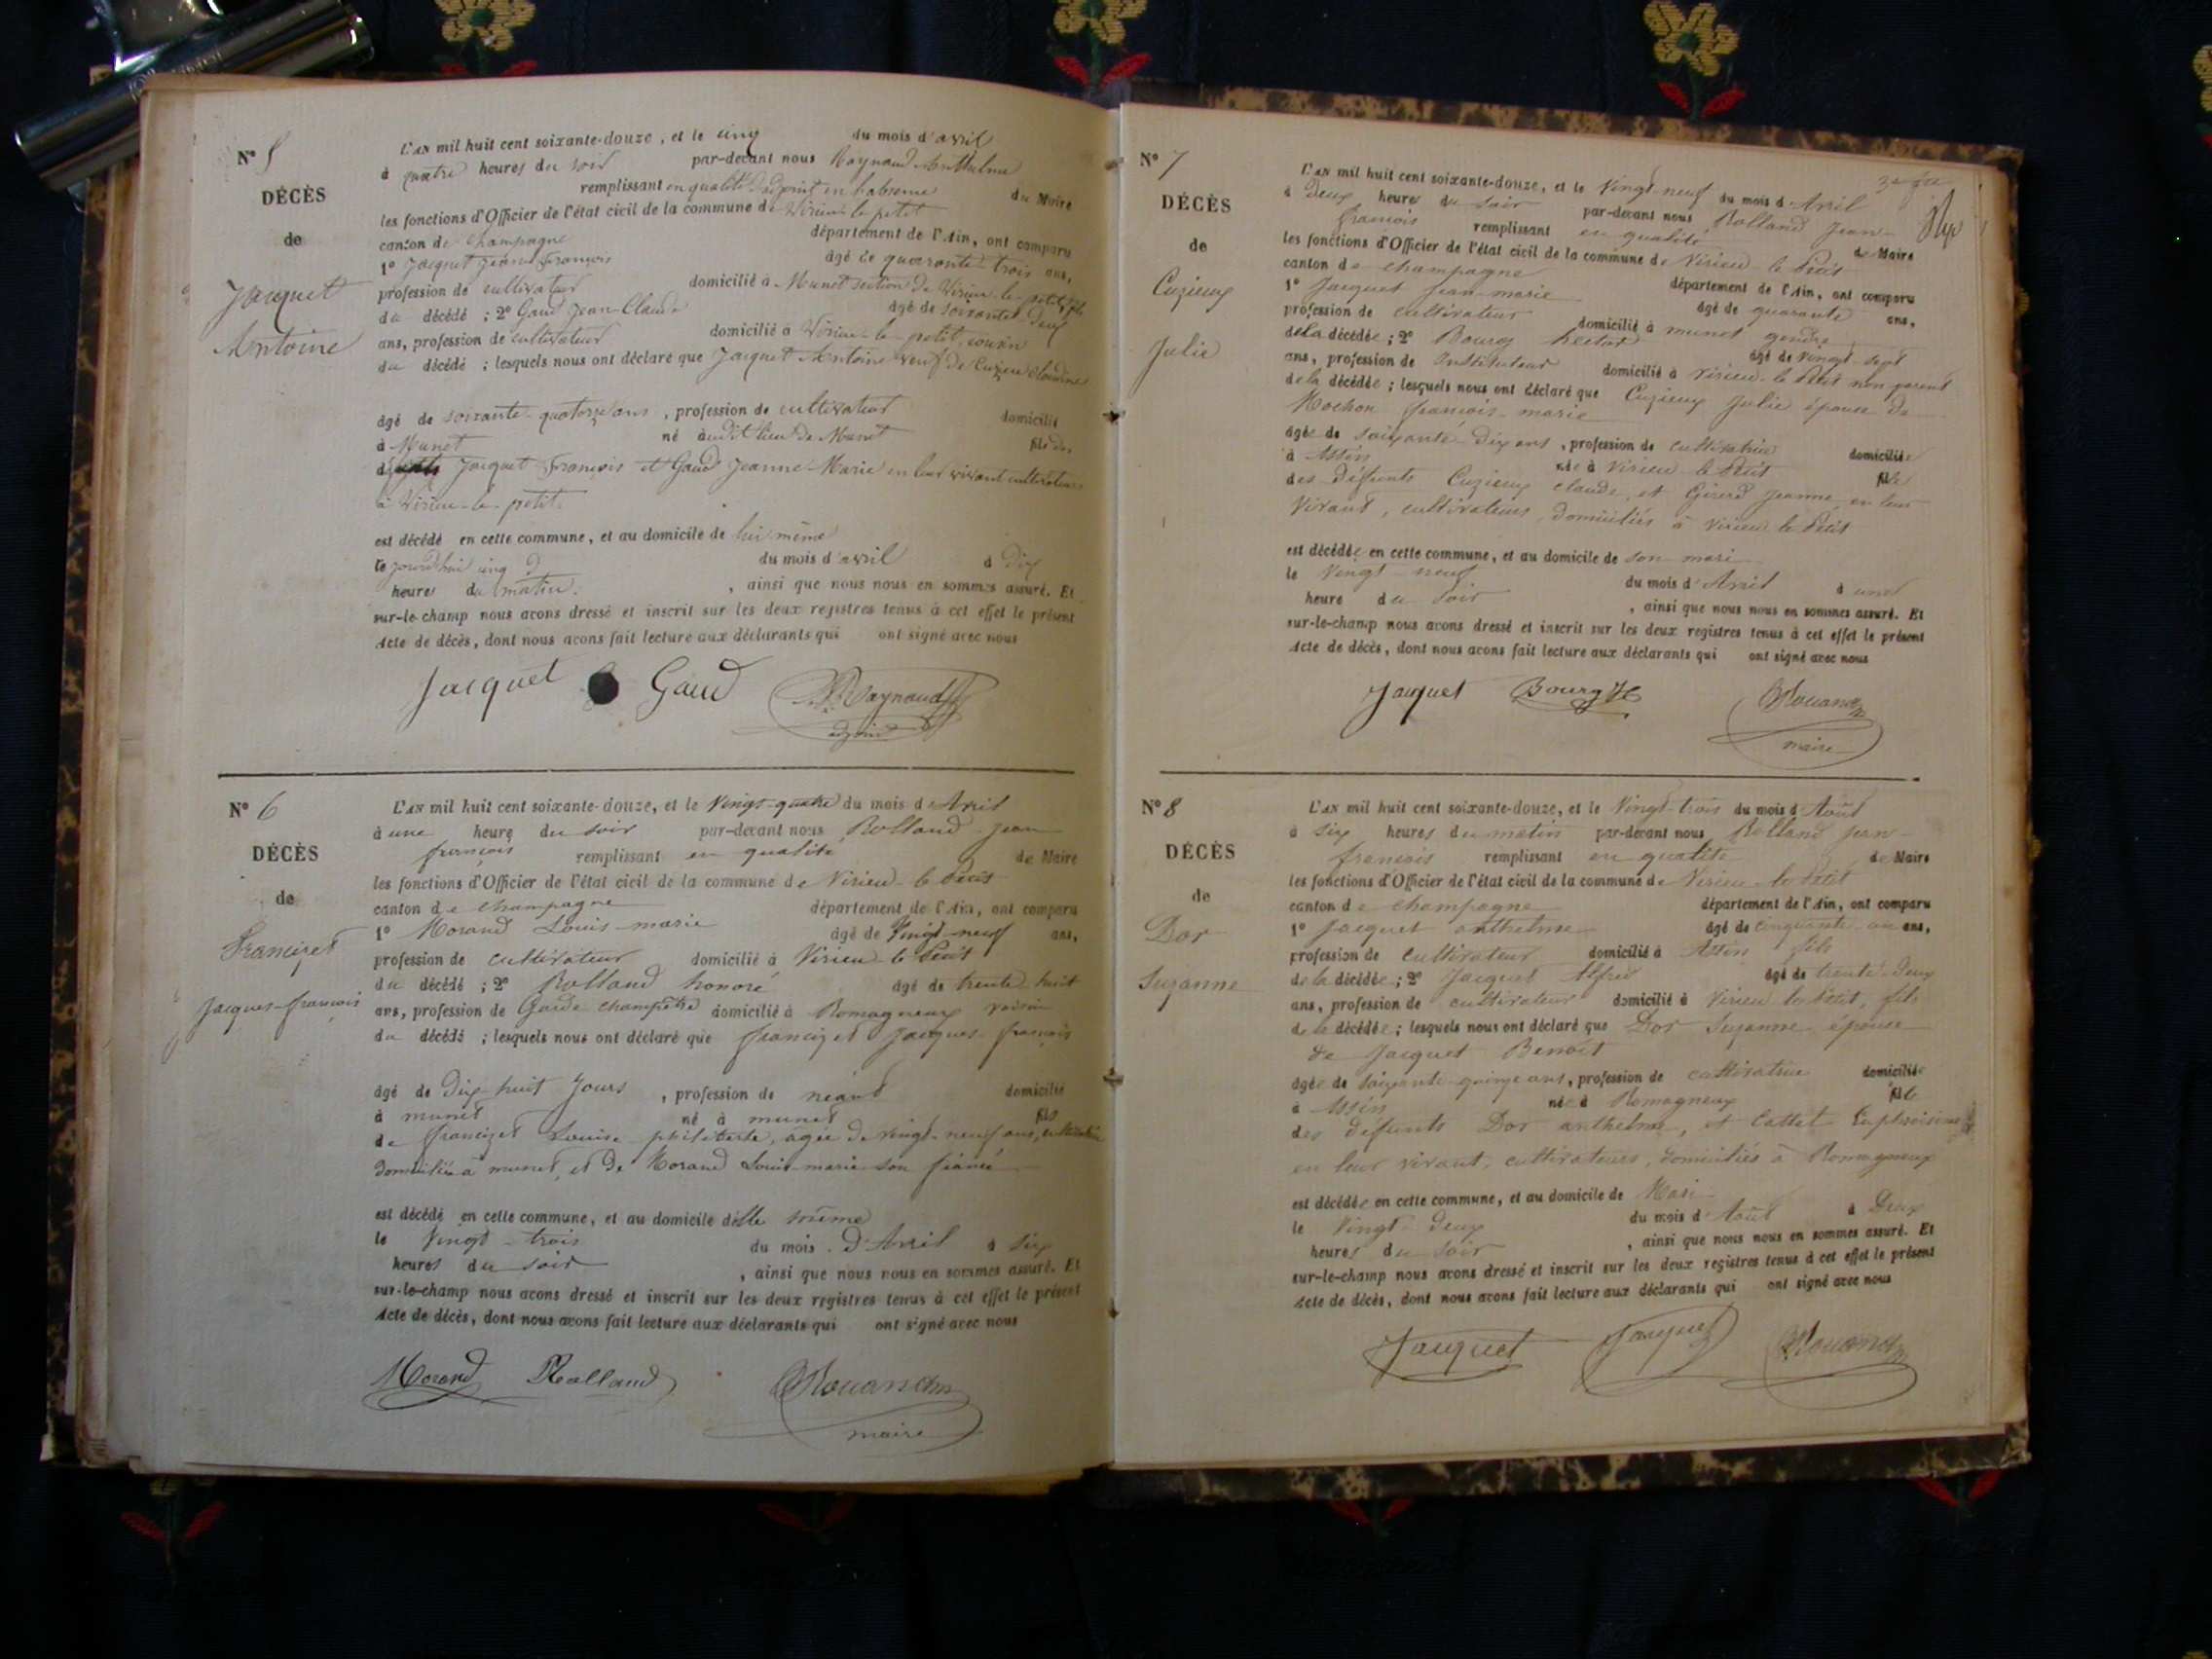 N° 5
DÉCÈS
de
Jacquet
Antoine
L'AN mil huit cent soixante-douze, et le cinq du mois d'avril
à quatre heures du soir par-devant nous Raynaud Anthelme
remplissant en qualité d'adjoint en l'absence du Maire
les fonctions d'Officier de l'état civil de la commune de Virieu-le-petit
canton de Champagne département de l'Ain, ont comparu
1° Jacquet Jean François âgé de quaranté trois ans,
profession de cultivateur domicilié à Munet section de Virieu-le-petit, fils
du décédé ; 2° Gaud Jean-Claude âgé de soixante deux
ans, profession de cultivateur domicilié à Virieu-le-petit, cousin
du décédé ; lesquels nous ont déclaré que Jacquet Antoine veuf de Cuzieu Claudine
âgé de soixante-quatorze ans, profession de cultivateur domicilié
à Munet né audit lieu de Munet fils des
Jacquet François et Gaud Jeanne-Marie en leur vivant cultivateurs
à Virieu-le-petit.
est décédé en cette commune, et au domicile de lui même
le jourd'hui cinq du mois d'avril à dix
heures du matin. , ainsi que nous nous en sommes assuré. Et
sur-le-champ nous avons dressé et inscrit sur les deux registres tenus à cet effet le présent
Acte de décès, dont nous avons fait lecture aux déclarants qui ont signé avec nous
Jacquet Gaud Raynaud
adjoint
N° 6
DÉCÈS
de
Francizet
Jacques-françois
L'AN mil huit cent soixante-douze, et le Vingt-quatre du mois d'Avril
à une heure du soir par-devant nous Rolland Jean
françois remplissant en qualité de Maire
les fonctions d'Officier de l'état civil de la commune de Virieu-le-Petit
canton de Champagne département de l'Ain, ont comparu
1° Morand Louis-marie âgé de Vingt-neuf ans,
profession de cultivateur domicilié à Virieu-le-Petit
du décédé ; 2° Rolland honoré âgé de trente huit
ans, profession de Garde champêtre domicilié à Romagneux voisin
du décédé ; lesquels nous ont déclaré que francizet Jacques-françois
âgé de Dix huit Jours, profession de néant domicilié
à munet né à munet fils
de francizet Louise-philiberte, agée de vingt-neuf ans, cultivatrice
domiciliée à munet, et de Morand Louis-marie son fiancé
est décédé en cette commune, et au domicile d'elle même
le Vingt-trois du mois d'Avril à six
heures du soir , ainsi que nous nous en sommes assuré. Et
sur-le-champ nous avons dressé et inscrit sur les deux registres tenus à cet effet le présent
Acte de décès, dont nous avons fait lecture aux déclarants qui ont signé avec nous
Morand Rolland
maire
N° 7
DÉCÈS
de
Cuzieux
Julie
L'AN mil huit cent soixante-douze, et le Vingt-neuf du mois d'Avril
à Deux heure du soir par-devant nous Rolland Jean-
françois remplissant en qualité de Maire
les fonctions d'Officier de l'état civil de la commune de Virieu-le-Petit
canton de Champagne département de l'Ain, ont comparu
1° Jacquet Jean-marie âgé de quarante ans,
profession de cultivateur domicilié à munet gendre
dela décédée ; 2° Bourg hector âgé de Vingt-sept
ans, profession de Instituteur domicilié à Virieu-le-Petit non parent
dela décédée ; lesquels nous ont déclaré que Cuzieux Julie épouse de
Mochon françois-marie
âgée de soixante Dix ans, profession de cultivatrice domiciliée
à Assin née à Virieu-le-Petit fille
des Défunts Cuzieux Claude, et Girerd Jeanne, en leur
Vivant, cultivateurs, domiciliés à Virieu le Petit
est décédée en cette commune, et au domicile de son mari
le Vingt-neuf du mois d'Avril à une
heure du soir , ainsi que nous nous en sommes assuré. Et
sur-le-champ nous avons dressé et inscrit sur les deux registres tenus à cet effet le présent
Acte de décès, dont nous avons fait lecture aux déclarants qui ont signé avec nous
Jacquet Bourg
maire
N° 8
DÉCÈS
de
Dor
Suzanne
L'AN mil huit cent soixante-douze, et le Vingt-trois du mois d'Août
à six heures du matin par-devant nous Rolland Jean-
françois remplissant en qualité de Maire
les fonctions d'Officier de l'état civil de la commune de Virieu-le-Petit
canton de Champagne département de l'Ain, ont comparu
1° Jacquet anthelme âgé de cinquante-un ans,
profession de cultivateur domicilié à Assin fils
dela décédée ; 2° Jacquet Alfred âgé de trente-Deux
ans, profession de cultivateur domicilié à Virieu le Petit, fils
dela décédée ; lesquels nous ont déclaré que Dor Suzanne épouse
de Jacquet Benoît
âgée de soixante-quinze ans, profession de cultivatrice domiciliée
à Assin née à Romagneux fille
des défunts Dor anthelme, et Cattet Euphroisine
en leur vivant, cultivateurs, domiciliés à Romagneux
est décédée en cette commune, et au domicile de Mari
le Vingt-deux du mois d'Août à Deux
heures du soir , ainsi que nous nous en sommes assuré. Et
sur-le-champ nous avons dressé et inscrit sur les deux registres tenus à cet effet le présent
Acte de décès, dont nous avons fait lecture aux déclarants qui ont signé avec nous
Jacquet Jacquet